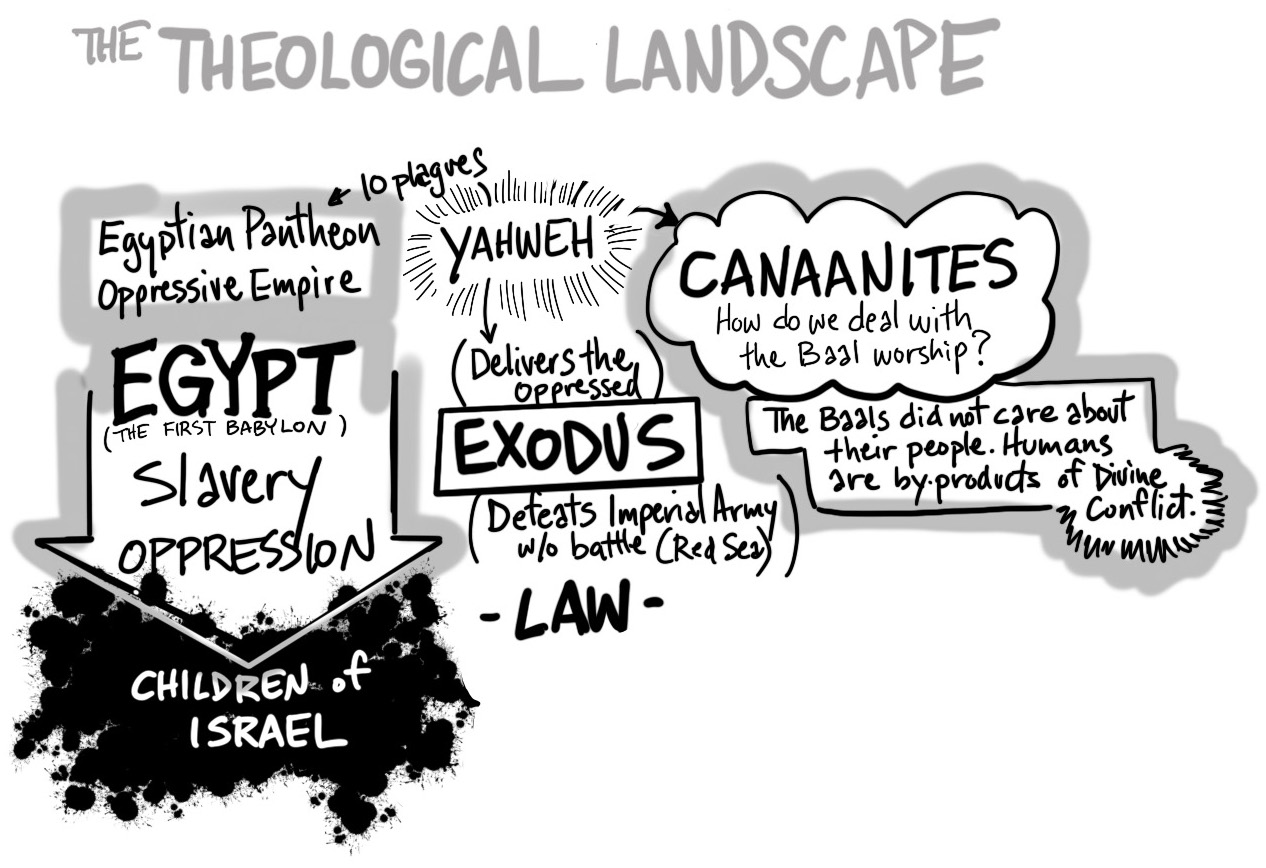 THE THEOLOGICAL LANDSCAPE
10 plagues
Egyptian Pantheon
Oppressive Empire
EGYPT
(THE FIRST BABYLON)
Slavery
OPPRESSION
CHILDREN of
ISRAEL
YAHWEH
(Delivers the
oppressed)
EXODUS
(Defeats Imperial Army
w/o battle (Red Sea))
- LAW -
CANAANITES
How do we deal with
the Baal worship?
The Baals did not care about
their people. Humans
are by-products of Divine
Conflict.